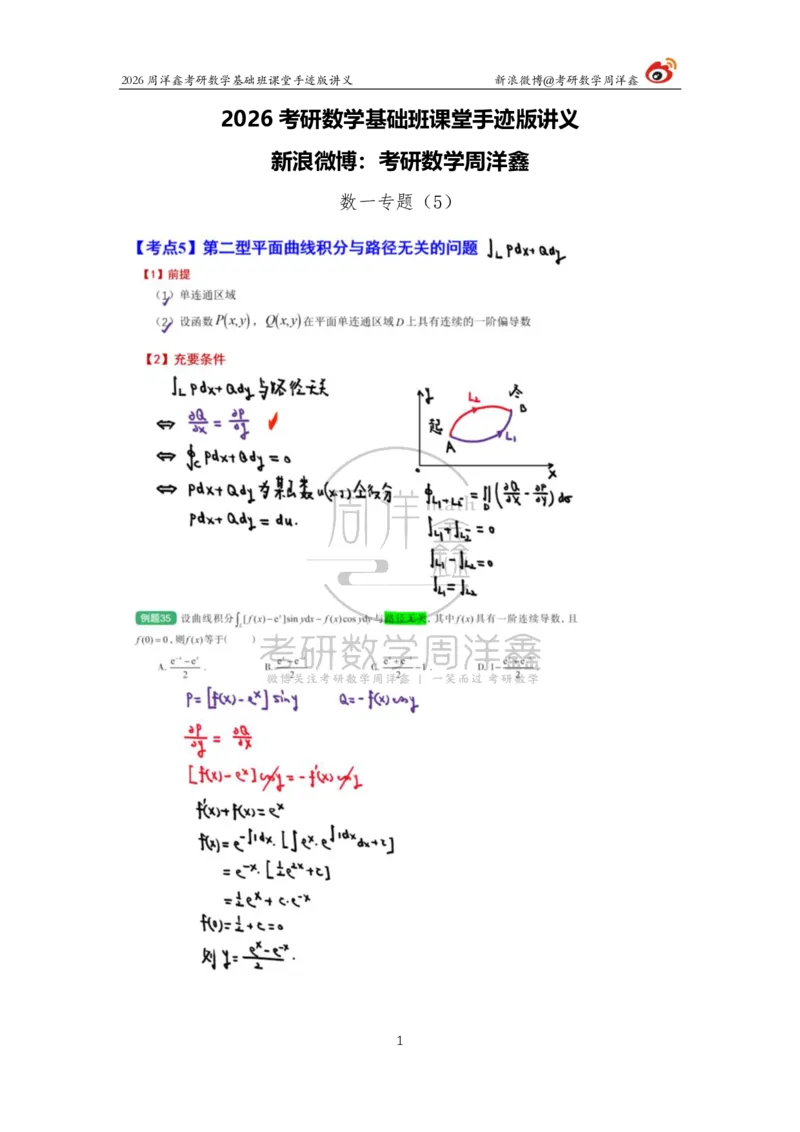 2026周洋鑫考研数学基础班课堂手迹版讲义 新浪微博@考研数学周洋鑫
2026 考研数学基础班课堂手迹版讲义
新浪微博：考研数学周洋鑫
数一专题（5）
【考点5】第二型平面曲线积分与路径无关的问题 ∫_L Pdx+Qdy
【1】前提
（1）单连通区域
（2）设函数P(x,y)，Q(x,y)在平面单连通区域D上具有连续的一阶偏导数
【2】充要条件
∫_L Pdx+Qdy与路径无关
⇔ ∂Q/∂x = ∂P/∂y ✓
⇔ ∮_C Pdx+Qdy=0
⇔ Pdx+Qdy为某函数u(x,y)全微分
Pdx+Qdy=du.
y
L₂
终
B
起
A
L₁
x
∮_{L₁+L₂⁻} = ∬_D(∂Q/∂x - ∂P/∂y)dσ
∫_{L₁}+∫_{L₂⁻}=0
∫_{L₁}-∫_{L₂}=0
∫_{L₁}=∫_{L₂}
例题35 设曲线积分∫_L[f(x)-eˣ]sin ydx-f(x)cos ydy与路径无关，其中f(x)具有一阶连续导数，且
f(0)=0，则f(x)等于( )
A. (e⁻ˣ-eˣ)/2 . B. (eˣ-e⁻ˣ)/2 . C. (eˣ+e⁻ˣ)/2 -1 . D. 1-(eˣ+e⁻ˣ)/2 .
P=[f(x)-eˣ]siny Q=-f(x)cosy
∂P/∂y = ∂Q/∂x
[f(x)-eˣ]cosy=-f'(x)cosy
f'(x)+f(x)=eˣ
f(x)=e^{-∫1dx}·[∫eˣ·e^{∫1dx}dx+c]
=e⁻ˣ·[½e²ˣ+c]
=½eˣ+c·e⁻ˣ
f(0)=½+c=0
则 y=(eˣ-e⁻ˣ)/2.
周洋鑫
math
考研数学周洋鑫
微博关注考研数学周洋鑫 | 一笑而过 考研数学
1